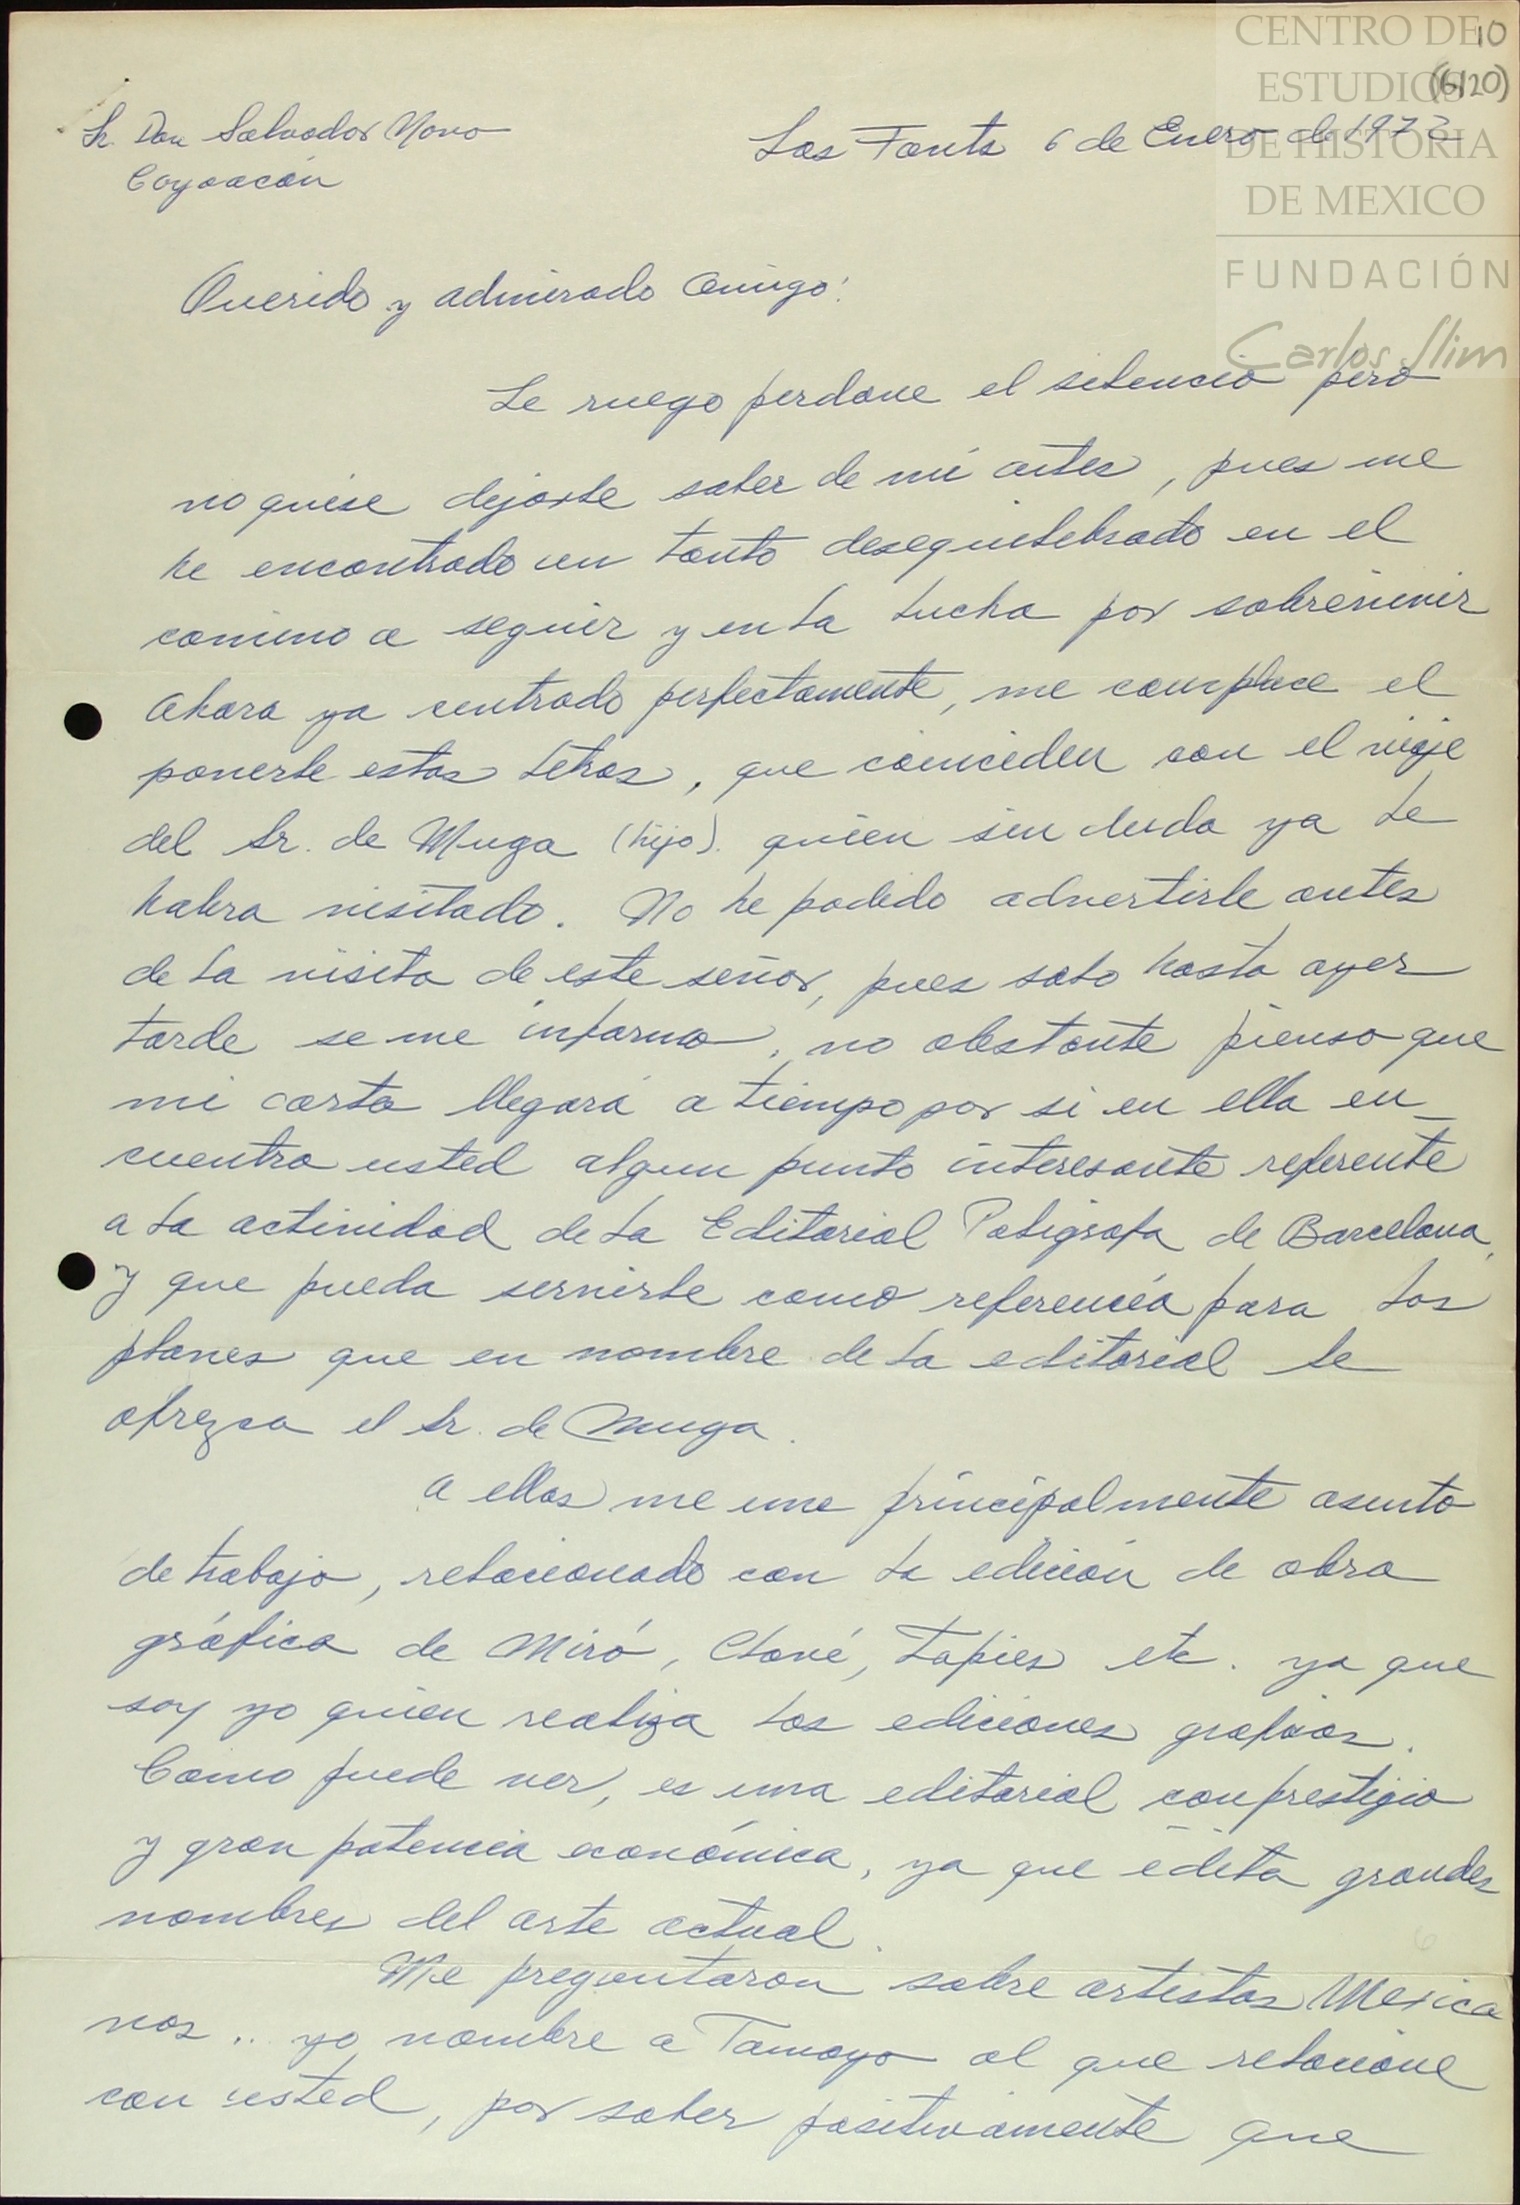 CENTRO DE
ESTUDIOS
DE HISTORIA
DE MEXICO
FUNDACIÓN
Carlos Slim
10
(6/20)
Sr. Don Salvador Novo
Coyoacán
Las Fonts 6 de Enero de 1973
Querido y admirado amigo:
Le ruego perdone el silencio pero
no quise dejarle saber de mi antes, pues me
he encontrado un tanto desequilibrado en el
camino a seguir y en la lucha por sobrevivir
ahora ya centrado perfectamente, me complace el
ponerle estas letras, que coinciden con el viaje
del Sr. de Muga (hijo). quien sin duda ya le
habra visitado. No he podido advertirle antes
de la visita de este señor, pues solo hasta ayer
tarde se me informo, no obstante pienso que
mi carta llegará a tiempo por si en ella en_
cuentra usted algun punto interesante referente
a la actividad de la Editorial Poligrafa de Barcelona,
y que pueda servirle como referencia para los
planes que en nombre de la editorial le
ofrezca el Sr. de Muga.
A ellos me une principalmente asunto
de trabajo, relacionado con la edición de obra
gráfica de Miró, Clavé, Tapies etc. ya que
soy yo quien realiza las ediciones graficas.
Como puede ver, es una editorial con prestigio
y gran potencia económica, ya que edita grandes
nombres del arte actual.
Me preguntaron sobre artistas Mexica
nos.. yo nombre a Tamayo al que relacione
con usted, por saber positivamente que